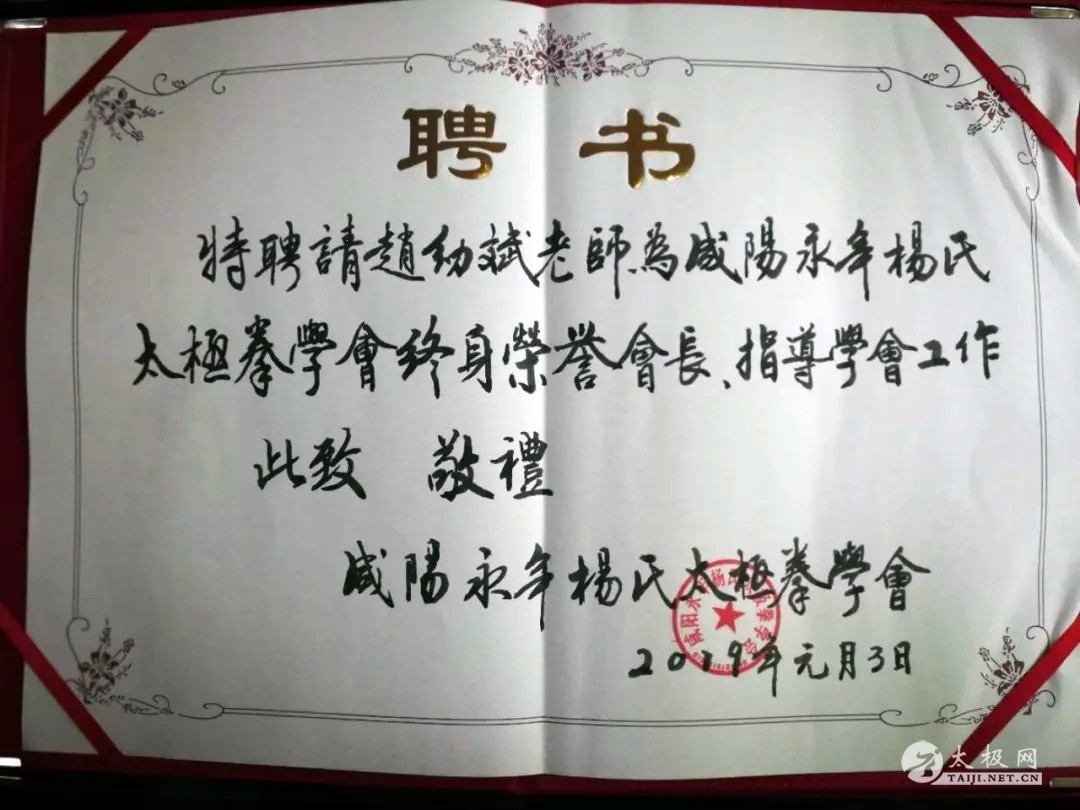 聘书
特聘請趙幼斌老師為咸陽永年楊氏
太極拳學會終身榮誉會長、指導學會工作
此致 敬禮
咸陽永年楊氏太極拳學會
2019年元月3日
太极网
TAIJI.NET.CN